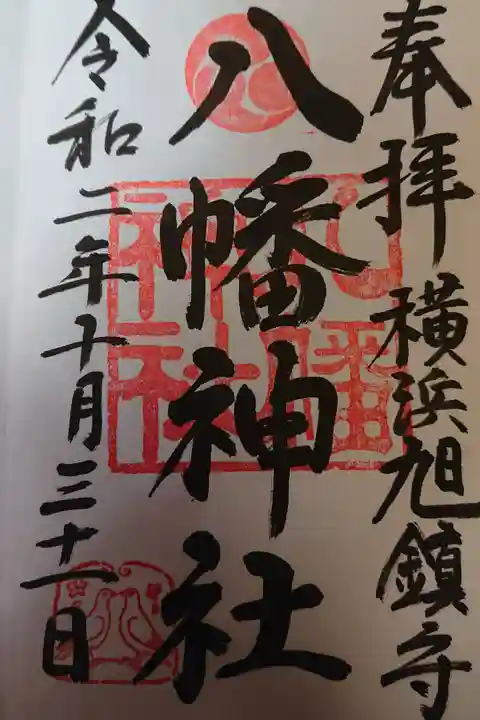 奉拝 横浜旭鎮守
八幡神社
令和二年十月三十一日
八幡
神社